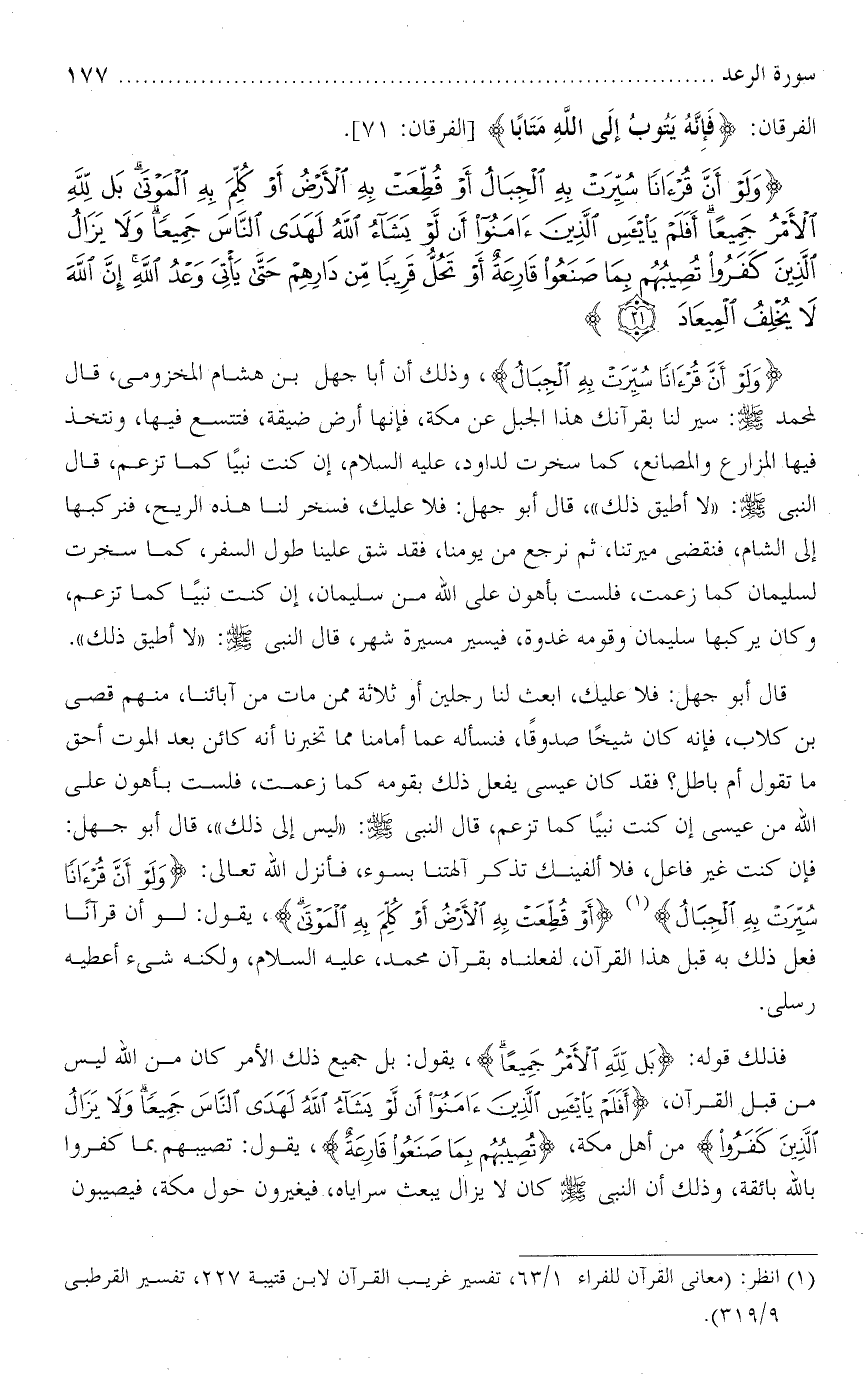 سورة الرعد ........................................................................ ١٧٧
الفرقان: ﴿فَإِنَّهُ يَتُوبُ إِلَى اللَّهِ مَتَابًا﴾ [الفرقان: ٧١].
﴿وَلَوْ أَنَّ قُرْءَانًا سُيِّرَتْ بِهِ ٱلْجِبَالُ أَوْ قُطِّعَتْ بِهِ ٱلْأَرْضُ أَوْ كُلِّمَ بِهِ ٱلْمَوْتَىٰ ۗ بَل لِّلَّهِ
ٱلْأَمْرُ جَمِيعًا ۗ أَفَلَمْ يَا۟يْـَٔسِ ٱلَّذِينَ ءَامَنُوٓا۟ أَن لَّوْ يَشَآءُ ٱللَّهُ لَهَدَى ٱلنَّاسَ جَمِيعًا ۗ وَلَا يَزَالُ
ٱلَّذِينَ كَفَرُوا۟ تُصِيبُهُم بِمَا صَنَعُوا۟ قَارِعَةٌ أَوْ تَحُلُّ قَرِيبًا مِّن دَارِهِمْ حَتَّىٰ يَأْتِىَ وَعْدُ ٱللَّهِ ۚ إِنَّ ٱللَّهَ
لَا يُخْلِفُ ٱلْمِيعَادَ ﴿٣١﴾ ﴾
﴿وَلَوْ أَنَّ قُرْءَانًا سُيِّرَتْ بِهِ ٱلْجِبَالُ﴾، وذلك أن أبا جهل بن هشام المخزومى، قال
لمحمد ﷺ: سير لنا بقرآنك هذا الجبل عن مكة، فإنها أرض ضيقة، فتتسع فيها، ونتخذ
فيها المزارع والمصانع، كما سخرت لداود، عليه السلام، إن كنت نبيًا كما تزعم، قال
النبى ﷺ: «لا أطيق ذلك»، قال أبو جهل: فلا عليك، فسخر لنا هذه الريح، فنركبها
إلى الشام، فنقضى ميرتنا، ثم نرجع من يومنا، فقد شق علينا طول السفر، كما سخرت
لسليمان كما زعمت، فلست بأهون على الله من سليمان، إن كنت نبيًا كما تزعم،
وكان يركبها سليمان وقومه غدوة، فيسير مسيرة شهر، قال النبى ﷺ: «لا أطيق ذلك».
قال أبو جهل: فلا عليك، ابعث لنا رجلين أو ثلاثة ممن مات من آبائنا، منهم قصى
بن كلاب، فإنه كان شيخًا صدوقًا، فنسأله عما أمامنا مما تخبرنا أنه كائن بعد الموت أحق
ما تقول أم باطل؟ فقد كان عيسى يفعل ذلك بقومه كما زعمت، فلست بأهون على
الله من عيسى إن كنت نبيًا كما تزعم، قال النبى ﷺ: «ليس إلى ذلك»، قال أبو جهل:
فإن كنت غير فاعل، فلا ألفينك تذكر آلهتنا بسوء، فأنزل الله تعالى: ﴿وَلَوْ أَنَّ قُرْءَانًا
سُيِّرَتْ بِهِ ٱلْجِبَالُ﴾(١) ﴿أَوْ قُطِّعَتْ بِهِ ٱلْأَرْضُ أَوْ كُلِّمَ بِهِ ٱلْمَوْتَىٰ ۗ﴾، يقول: لو أن قرآنًا
فعل ذلك به قبل هذا القرآن، لفعلناه بقرآن محمد، عليه السلام، ولكنه شىء أعطيه
رسلى.
فذلك قوله: ﴿بَل لِّلَّهِ ٱلْأَمْرُ جَمِيعًا ۗ﴾، يقول: بل جميع ذلك الأمر كان من الله ليس
من قبل القرآن، ﴿أَفَلَمْ يَا۟يْـَٔسِ ٱلَّذِينَ ءَامَنُوٓا۟ أَن لَّوْ يَشَآءُ ٱللَّهُ لَهَدَى ٱلنَّاسَ جَمِيعًا ۗ وَلَا يَزَالُ
ٱلَّذِينَ كَفَرُوا۟﴾ من أهل مكة، ﴿تُصِيبُهُم بِمَا صَنَعُوا۟ قَارِعَةٌ﴾، يقول: تصيبهم بما كفروا
بالله بائقة، وذلك أن النبى ﷺ كان لا يزال يبعث سراياه، فيغيرون حول مكة، فيصيبون
(١) انظر: (معانى القرآن للفراء ٦٣/١، تفسير غريب القرآن لابن قتيبة ٢٢٧، تفسير القرطبى
٣١٩/٩).